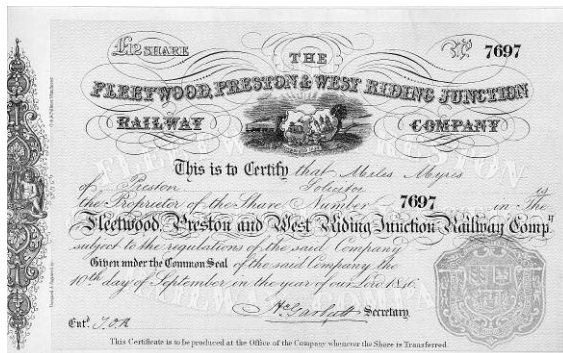 £12 SHARE
No 7697
THE
FLEETWOOD, PRESTON & WEST RIDING JUNCTION
RAILWAY COMPANY
This is to Certify that Miles Myres
of Preston Solicitor is
the Proprietor of the Share Number 7697 in The
Fleetwood, Preston and West Riding Junction Railway Compy
subject to the regulations of the said Company
Given under the Common Seal of the said Company the
10th day of September in the year of our Lord 1846.
Secretary
Entd
This Certificate is to be produced at the Office of the Company whenever the Share is Transferred.